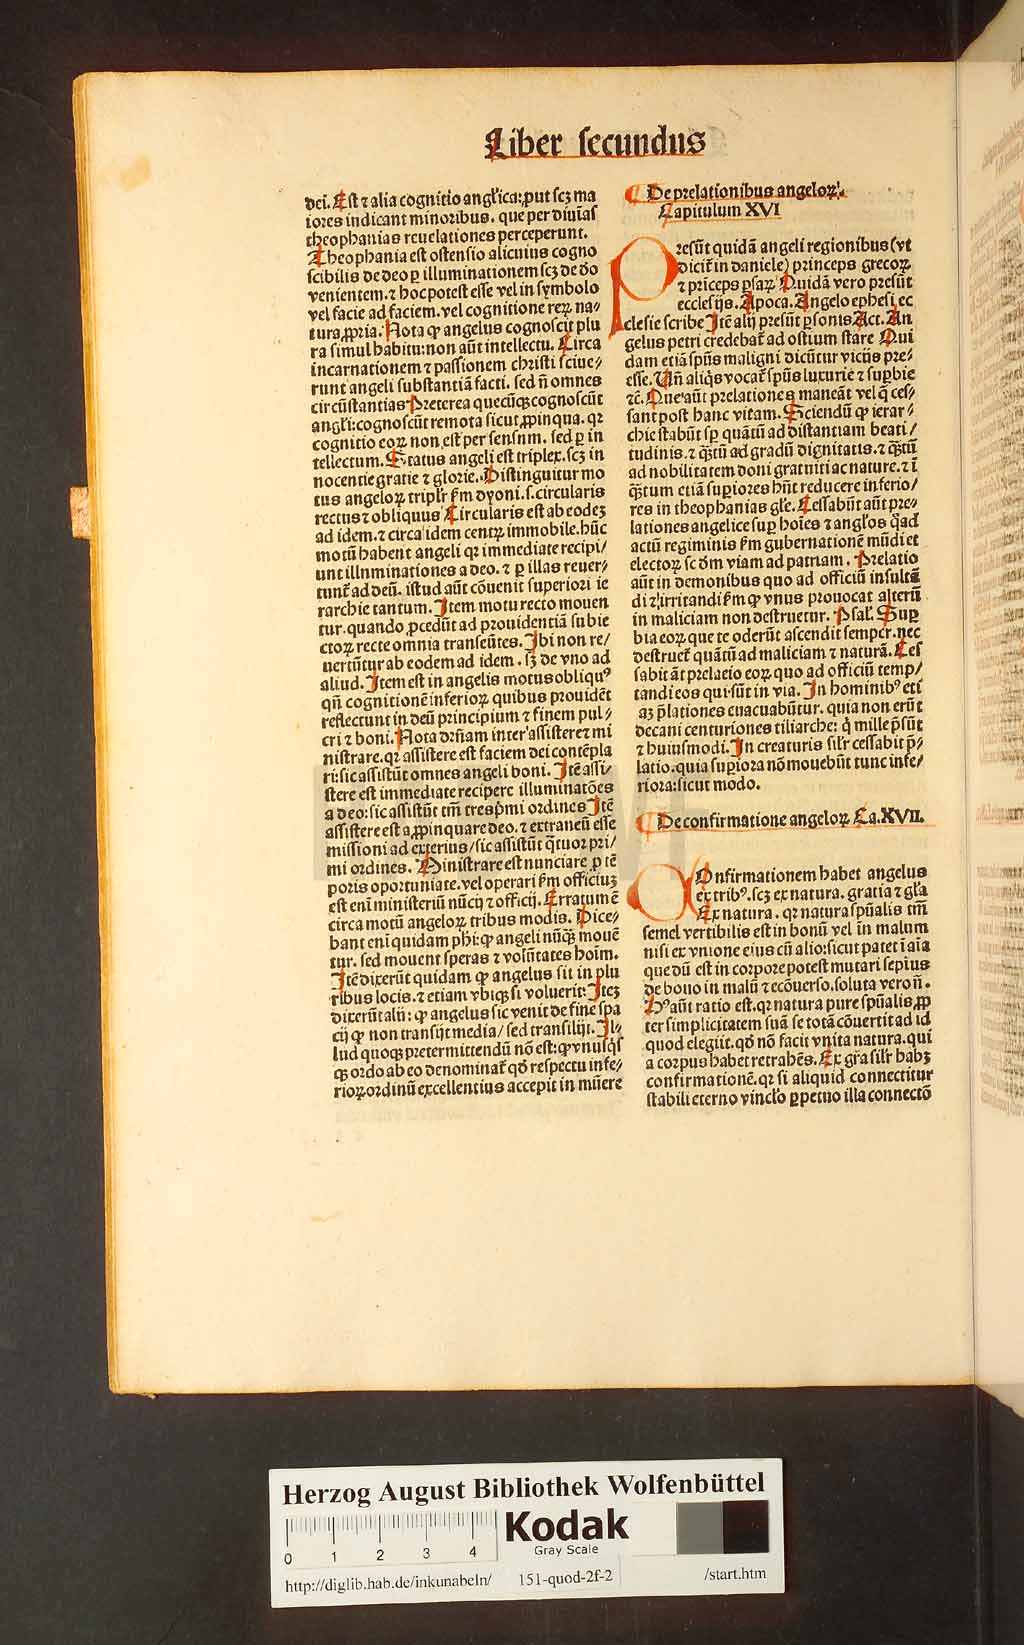 Liber secundus
dei. Est ⁊ alia cognitio angl'ica: ꝓut scꝫ ma
iores indicant minoribus. que per diuīas
theophanias reuelationes perceperunt.
Theophania est ostensio alicuius cogno
scibilis de deo ꝑ illuminationem scꝫ de do
venientem. ⁊ hoc potest esse vel in symbolo
vel facie ad faciem. vel cognitione reꝝ na⸗
tura ꝓpria. Nota ꝙ angelus cognoscit plu
ra simul habitu: non aūt intellectu. Circa
incarnationem ⁊ passionem christi sciue⸗
runt angeli substantiā facti. sed n̄ omnes
circūstantias Preterea quecūqꝫ cognoscūt
angl'i: cognoscūt remota sicut ꝓpinqua. qꝛ
cognitio eoꝝ non est per sensnm. sed ꝑ in
tellectum. Status angeli est triplex. scꝫ in
nocentie gratie ⁊ glorie. Distinguitur mo
tus angeloꝝ triplr̄ ẜm dyoni. s. circularis
rectus ⁊ obliquus Circularis est ab eodeꝫ
ad idem. ⁊ circa idem centꝝ immobile. hūc
motū habent angeli qꝛ immediate recipi/
unt illnminationes a deo. ⁊ ꝑ illas reuer⸗
tunt̄ ad deū. istud aūt cōuenit superiori ie
rarchie tantum. Item motu recto mouen
tur. quando ꝓcedūt ad prouidentiā subie
ctoꝝ recte omnia transeūtes. Ibi non re/
uertūtur ab eodem ad idem. sꝫ de vno ad
aliud. Item est in angelis motus obliquꝰ
qn̄ cognitionē inferioꝝ quibus prouidēt
reflectunt in deū principium ⁊ finem pul⸗
cri ⁊ boni. Nota dr̄nam inter assistere ⁊ mi
nistrare. qꝛ assistere est faciem dei contēpla
ri: sic assistūt omnes angeli boni. Itē assi⸗
stere est immediate recipere illuminatōes
a deo: sic assistūt tm̄ tres pͥmi ordines Itē
assistere est a ꝓpinquare deo. ⁊ extraneū esse
missioni ad exterius/ sic assistūt q̄tuor pri/
mi ordines. Ministrare est nunciare ꝑ tē
poris oportuniate. vel operari ẜm officiuꝫ
est enī ministeriū nūcij ⁊ officij. Erratum ē
circa motū angeloꝝ tribus modis. Dice⸗
bant enī quidam phi: ꝙ angeli nūq̄ꝫ mouē
tur. sed mouent speras ⁊ volūtates hoīm.
Itē dixerūt quidam ꝙ angelus sit in plu
ribus locis. ⁊ etiam vbiqꝫ si voluerit: Iteꝫ
dixerūt alij: ꝙ angelus sic venit de fine spa
cij ꝙ non transijt media/ sed transilijt. Il⸗
lud quoqꝫ pretermittendū nō est: ꝙ vnusq̄s
qꝫ ordo ab eo denominat̄ qd̄ respectu infe⸗
rioꝝ ordinū excellentius accepit in mūere
De prelationibus angeloꝝ.
Capitulum XVI
Presūt quidā angeli regionibus (vt
dicit̄ in daniele) princeps grecoꝝ
⁊ prīceps ꝑsaꝝ Quidā vero presūt
ecclesijs. Apoca. Angelo ephesi ec
clesie scribe Itē alij presūt ꝑsonis Act. An
gelus petri credebat̄ ad ostium stare Qui
dam etiā spūs maligni dicūtur vicijs pre⸗
esse. Un̄ aliq̄s vocat̄ spūs luxurie ⁊ suꝑbie
⁊c̄. Que aūt prelationes maneāt vel q̄ ces⸗
sant post hanc vitam. Sciendū ꝙ ierar⸗
chie stabūt sꝑ quātū ad distantiam beati/
tudinis. ⁊ q̄ꝫtū ad gradū dignitatis. ⁊ q̄ꝫtū
ad nobilitatem doni gratuiti ac nature. ⁊ ī
q̄ꝫtum etiā suꝑiores hn̄t reducere inferio/
res in theophanias gl'e. Cessabūt aūt pre⸗
lationes angelice suꝑ hoīes ⁊ angl'os q̄ad
actū regiminis ẜm gubernationē mūdi et
electoꝝ ẜc dm̄ viam ad patriam. Prelatio
aūt in demonibus quo ad officiū insultā
di ⁊ irritandi ẜm ꝙ vnus prouocat alterū
in maliciam non destruetur. Psal. Suꝑ
bia eoꝝ que te oderūt ascendit semper. nec
destruet̄ quātū ad maliciam ⁊ naturā. Ces
sabit āt prelatio eoꝝ quo ad officiū temp/
tandi eos qui sūt in via. In hominibꝰ etī
aꝫ p̄lationes euacuabūtur. quia non erūt
decani centuriones tiliarche: q̄ mille p̄sūt
⁊ huiusmodi. In creaturis sil'r cessabit p̄⸗
latio. quia suꝑiora nō mouebūt tunc infe/
riora: sicut modo.
De confirmatione angeloꝝ Ca. XVII.
COnfirmationem habet angelus
ex tribꝰ. scꝫ ex natura. gratia ⁊ gl'a
Ex natura. qꝛ natura spūalis tm̄
semel vertibilis est in bonū vel in malum
nisi ex vnione eius cū alio: sicut patet ī aīa
que dū est in corpore potest mutari sepius
de bouo in malū ⁊ ecōuerso. soluta vero n̄.
Hꝰ aūt ratio est. qꝛ natura pure spūalis ꝓp
ter simplicitatem suā se totā cōuertit ad id
quod elegiit. qd̄ nō facit vnita natura. qui
a corpus habet retrahēs. Ex gr̄a sil'r habꝫ
confirmationē. qꝛ si aliquid connectitur
stabili eterno vincl'o ꝑpetuo illa connectō
Herzog August Bibliothek Wolfenbüttel
0 1 2 3 4
Kodak
Gray Scale
http://diglib.hab.de/inkunabeln/ 151-quod-2f-2 /start.htm